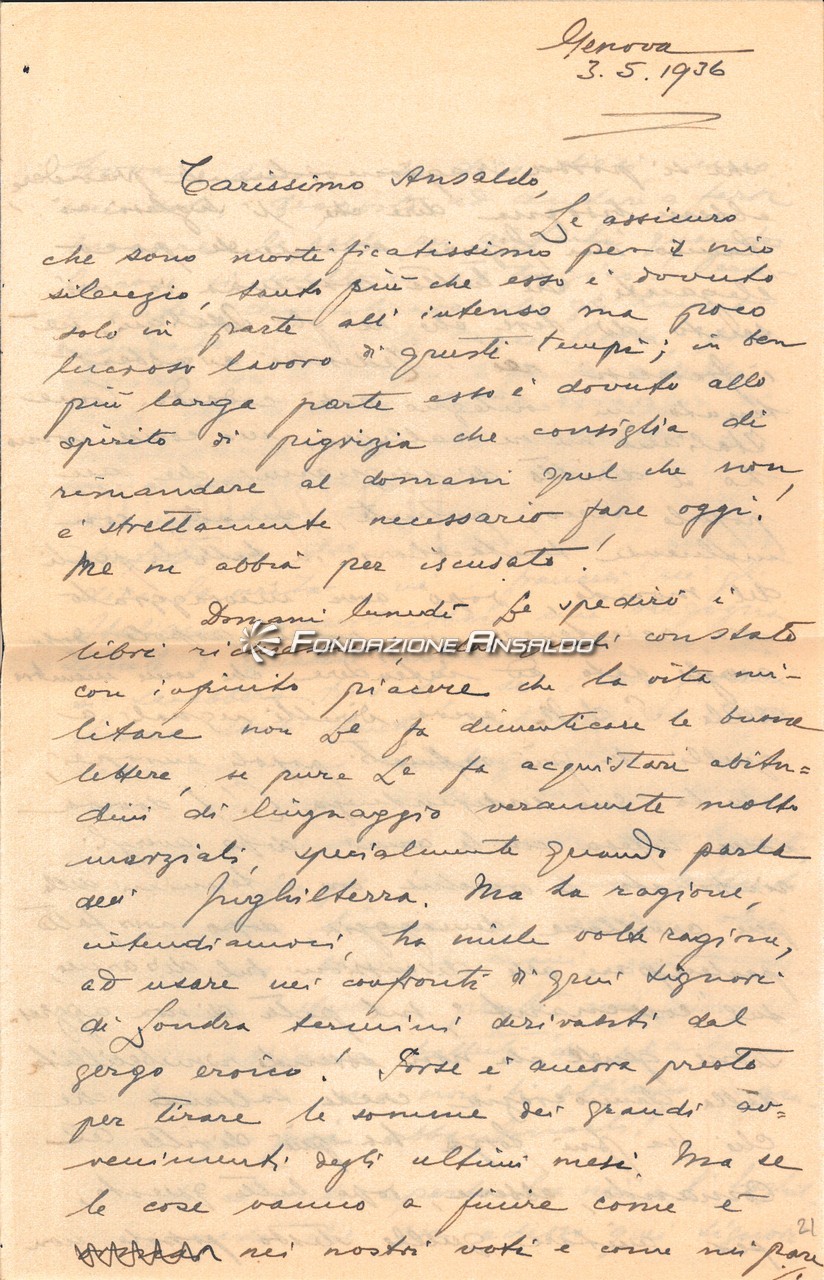 Genova
3.5.1936
Carissimo Ansaldo,
Le assicuro
che sono mortificatissimo per il mio
silenzio, tanto più che esso è dovuto
solo in parte all' intenso ma poco
lucroso lavoro di questi tempi; in ben
più larga parte esso è dovuto allo
spirito di pigrizia che consiglia di
rimandare al domani quel che non
è strettamente necessario fare oggi!
Me ne abbia per iscusato!
Domani lunedì Le spedirò i
libri
FONDAZIONE ANSALDO
constato
con infinito piacere che la vita mi-
litare non Le fa dimenticare le buone
lettere, se pure Le fa acquistare abitu=
dini di linguaggio veramente molto
marziali, specialmente quando parla
Inghilterra. Ma ha ragione,
intendiamoci, ha mille volte ragione,
ad usare nei confronti di quei signori
di Londra termini derivanti dal
gergo eroico! Forse è ancora presto
per tirare le somme dei grandi av=
venimenti degli ultimi mesi. Ma se
le cose vanno a finire come è
nei nostri voti e come mi pare
21